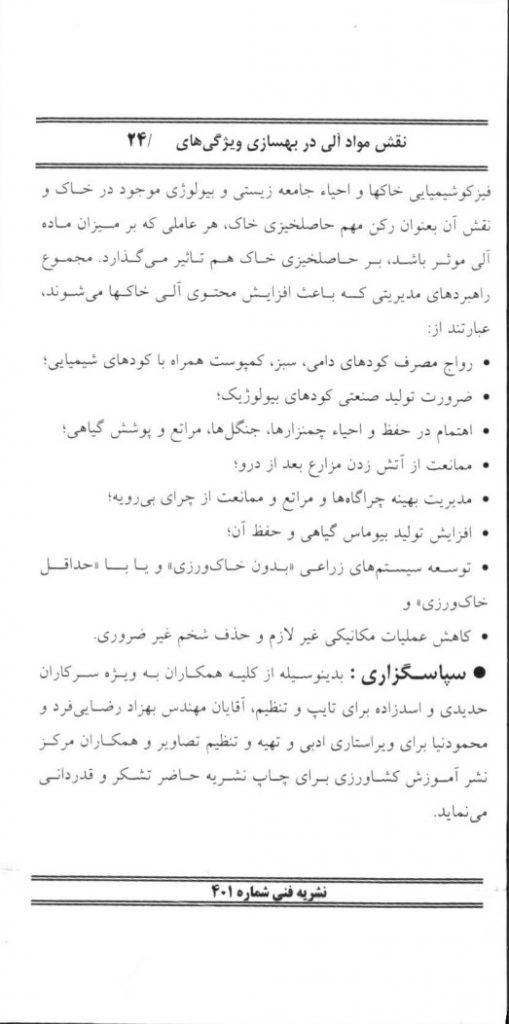 نقش مواد آلی در بهسازی ویژگی‌های /۲۴
فیزکوشیمیایی خاکها و احیاء جامعه زیستی و بیولوژی موجود در خاک و
نقش آن بعنوان رکن مهم حاصلخیزی خاک، هر عاملی که بر میزان ماده
آلی موثر باشد، بر حاصلخیزی خاک هم تاثیر می‌گذارد. مجموع
راهبردهای مدیریتی که باعث افزایش محتوی آلی خاکها می‌شوند،
عبارتند از:
• رواج مصرف کودهای دامی، سبز، کمپوست همراه با کودهای شیمیایی؛
• ضرورت تولید صنعتی کودهای بیولوژیک؛
• اهتمام در حفظ و احیاء چمنزارها، جنگل‌ها، مراتع و پوشش گیاهی؛
• ممانعت از آتش زدن مزارع بعد از درو؛
• مدیریت بهینه چراگاه‌ها و مراتع و ممانعت از چرای بی‌رویه؛
• افزایش تولید بیوماس گیاهی و حفظ آن؛
• توسعه سیستم‌های زراعی «بدون خاک‌ورزی» و یا با «حداقل
خاک‌ورزی» و
• کاهش عملیات مکانیکی غیر لازم و حذف شخم غیر ضروری.
● سپاسگزاری : بدینوسیله از کلیه همکاران به ویژه سرکاران
حدیدی و اسدزاده برای تایپ و تنظیم، آقایان مهندس بهزاد رضایی‌فرد و
محمودنیا برای ویراستاری ادبی و تهیه و تنظیم تصاویر و همکاران مرکز
نشر آموزش کشاورزی برای چاپ نشریه حاضر تشکر و قدردانی
می‌نماید.
نشریه فنی شماره ۴۰۱